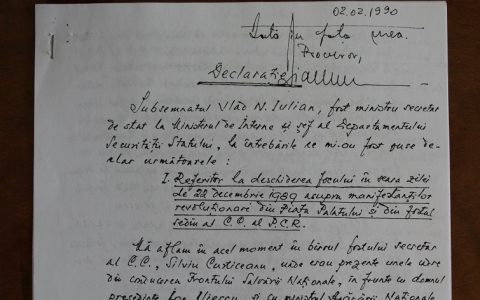 02.02.1990
Dată în fața mea.
Procuror,
Declarație
Subsemnatul Vlad N. Iulian, fost ministru secretar
de stat la Ministerul de Interne și șef al Departamentului
Securității Statului, la întrebările ce mi-au fost puse de-
clar următoarele :
I. Referitor la deschiderea focului în seara zilei
de 22 decembrie 1989 asupra manifestanților
revoluționari din Piața Palatului și din fostul
sediu al C.C. al P.C.R.
Mă aflam în acel moment în biroul fostului secretar
al C.C., Silviu Curticeanu, unde erau prezente unele cadre
din conducerea Frontului Salvării Naționale, în frunte cu domnul
președinte Ion Iliescu și cu ministrul Apărării Naționale